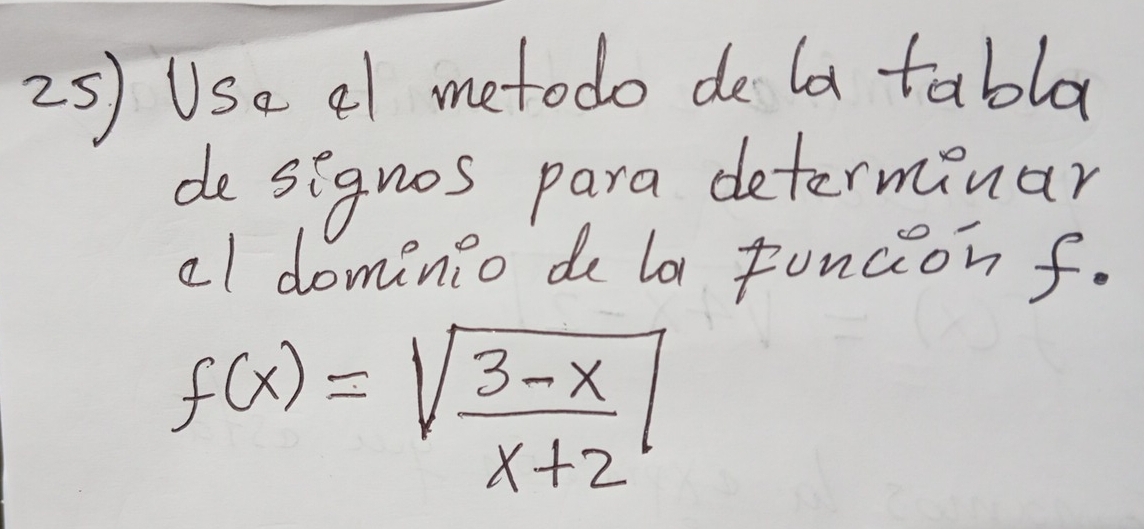 25) Use el metodo de la tabla
de signos para determinar
el dominio de la función f.
f(x) = √((3-x)/(x+2))